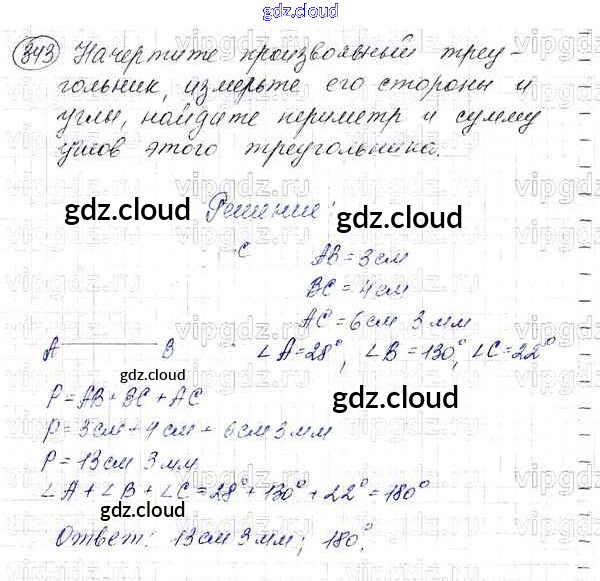 gdz.cloud
343 Начертите произвольный треу-
гольник, измерьте его стороны и
углы, найдите периметр и сумму
углов этого треугольника.
vipgdz.ru
gdz.cloud Решение: gdz.cloud
C AB = 3 см
BC = 4 см
AC = 6 см 3 мм
A B ∠A = 28°, ∠B = 130°, ∠C = 22°
gdz.cloud gdz.cloud
P = AB + BC + AC
P = 3 см + 4 см + 6 см 3 мм
P = 13 см 3 мм
∠A + ∠B + ∠C = 28° + 130° + 22° = 180°
gdz.cloud gdz.cloud
Ответ: 13 см 3 мм; 180°.